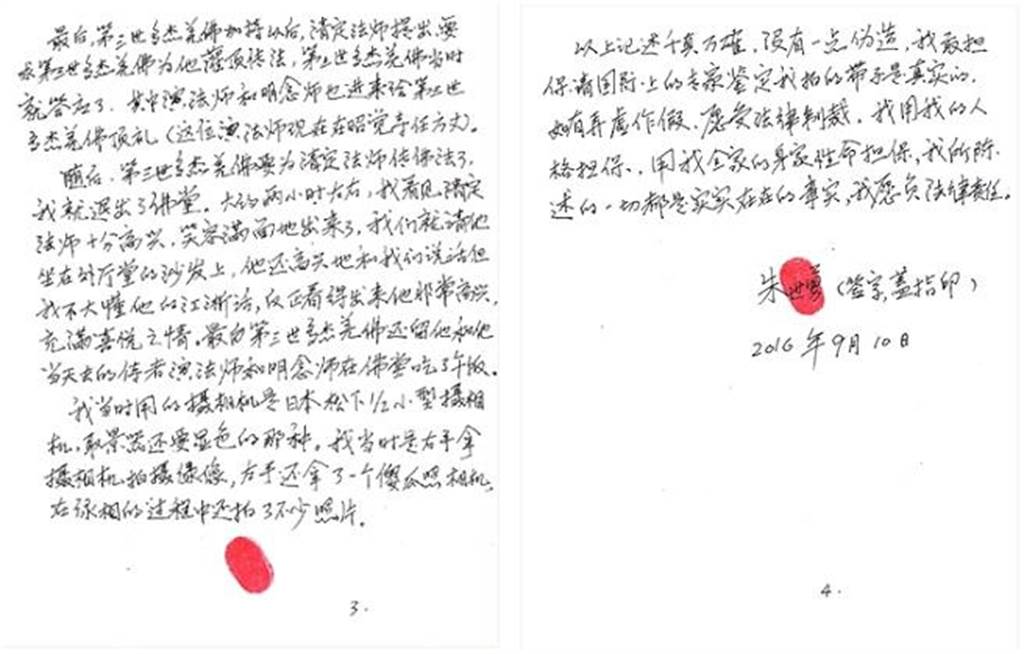 最后,第三世多杰羌佛加持以后,清定法师提出要
求第三世多杰羌佛为他灌顶传法,第三世多杰羌佛当时
就答应了。其中演法师和明念师也进来给第三世
多杰羌佛顶礼(这位演法师现在在昭觉寺任方丈)。
随后,第三世多杰羌佛要为清定法师传佛法了,
我就退出了佛堂。大约两小时左右,我看见清定
法师十分高兴,笑容满面地出来了,我们就请他
坐在外厅堂的沙发上,他还高兴地和我们说话但
我不大懂他的江浙话,反正看得出来他非常高兴,
充满喜悦之情。最后第三世多杰羌佛还留他和他
当天去的侍者演法师和明念师在佛堂吃了午饭。
我当时用的摄相机是日本松下1/2小型摄相
机,取景器还要显色的那种。我当时是右手拿
摄相机拍摄录像,左手还拿了一个傻瓜照相机,
在录相的过程中还拍了不少照片。
3.
以上记述千真万确,没有一点伪造,我敢担
保请国际上的专家鉴定我拍的带子是真实的,
如有弄虚作假,愿受法律制裁。我用我的人
格担保,用我全家的身家性命担保,我所陈
述的一切都是实实在在的事实,我愿负法律责任。
朱世勇(签字,盖指印)
2016年9月10日
4.